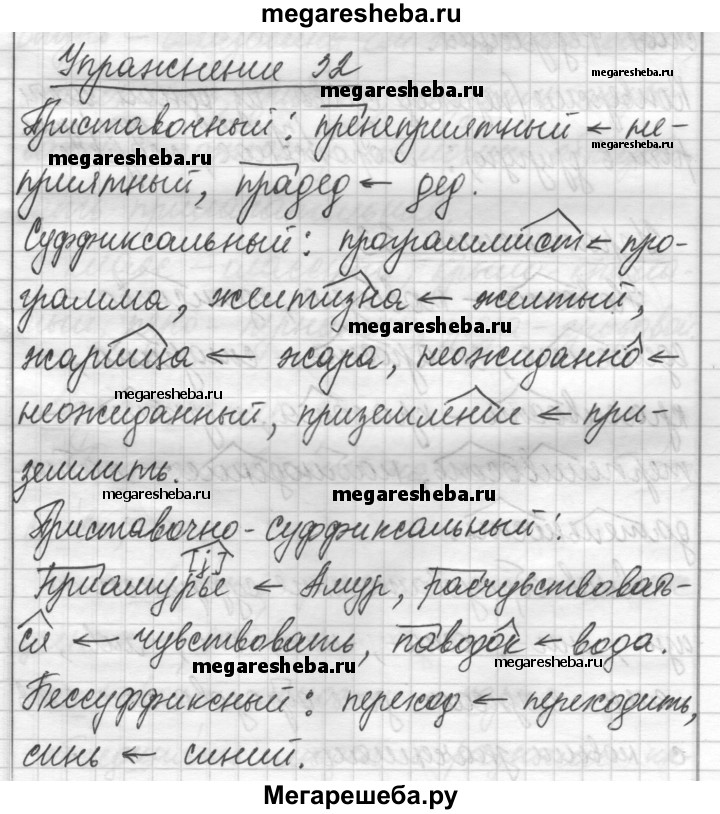 megaresheba.ru
Упражнение 32
megaresheba.ru
megaresheba.ru
Приставочный: пренеприятный ← не-
megaresheba.ru
megaresheba.ru
приятный, прадед ← дед.
Суффиксальный: программист ← про-
грамма, желтизна ← желтый,
megaresheba.ru
жарища ← жара, неожиданно ←
megaresheba.ru
неожиданный, приземление ← при-
землить.
megaresheba.ru
megaresheba.ru
Приставочно-суффиксальный:
[j]
Приамурье ← Амур, расчувствовать-
ся ← чувствовать, паводок ← вода.
megaresheba.ru
megaresheba.ru
Бессуффиксный: переход ← переходить,
megaresheba.ru
синь ← синий.
Мегарешеба.ру